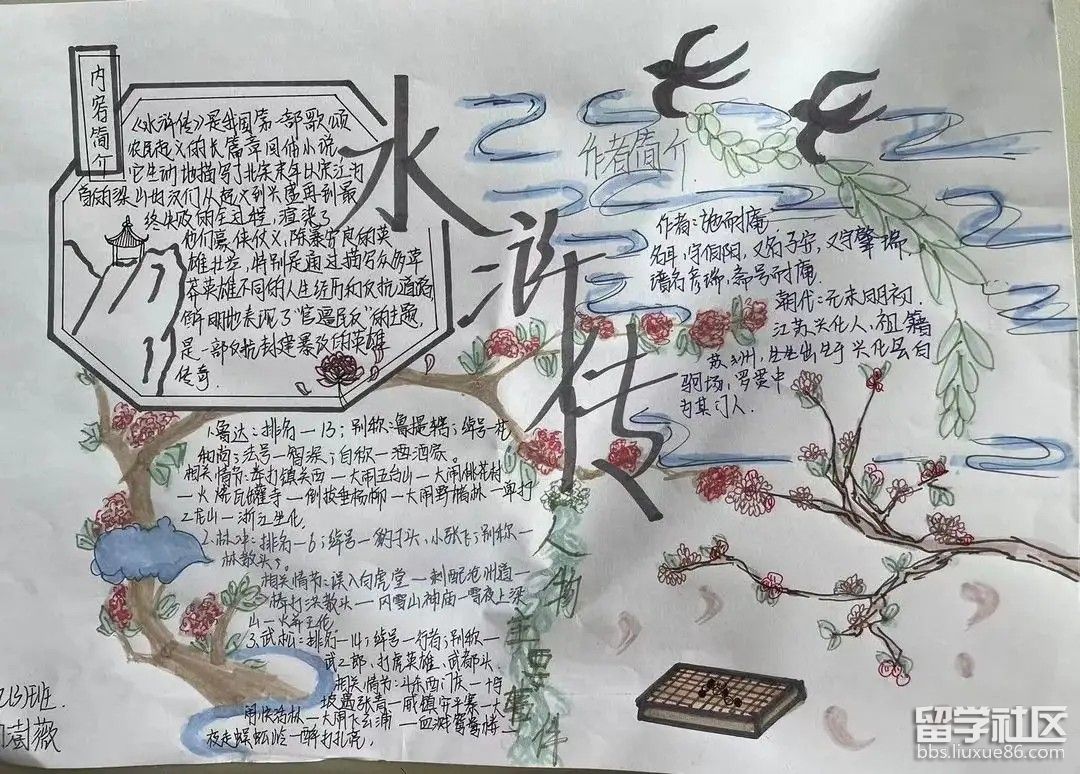 内容简介
《水浒传》是我国第一部歌颂
农民起义的长篇章回体小说
它生动地描写了北宋末年以宋江为
首的梁山好汉们从起义到兴盛再到最
终失败的全过程，渲染了
他们豪侠仗义，除暴安良的英
雄壮姿，特别是通过描写众多草
莽英雄不同的人生经历和反抗道路
鲜明地表现了“官逼民反”的主题，
是一部反抗封建暴政的英雄
传奇．
水浒传
作者简介
作者：施耐庵
名耳，字伯阳，又名子安，又字肇瑞，
谱名彦瑞，斋号耐庵
朝代：元末明初．
江苏兴化人，祖籍
苏州，生出生于兴化县白
驹场，罗贯中
为其门人．
1.鲁达：排名—13；别称：鲁提辖；绰号—花
和尚；法号—智深；自称—洒酒家。
相关情节：拳打镇关西—大闹五台山—大闹桃花村
—火烧瓦罐寺—倒拔垂杨柳—大闹野猪林—单打
二龙山—浙江坐化．
2.林冲：排名—6；绰号—豹子头，小张飞；别称—
林教头。
相关情节：误入白虎堂—刺配沧州道—
棒打洪教头—风雪山神庙—雪夜上梁
山—火并王伦
3.武松：排名—14；绰号—行者；别称—
武二郎，打虎英雄、武都头．
相关情节：斗杀西门庆—十字
坡遇张青—威镇安平寨—大
闹快活林—大闹飞云浦—血溅鸳鸯楼—
夜走蜈蚣岭—醉打孔亮，
人物
事件
13班．
澍薇
留学社区
bbs.liuxue86.com